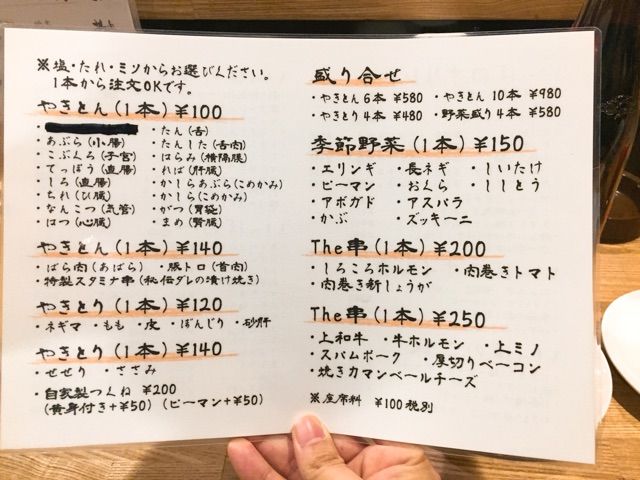 ※塩・たれ・ミソからお選びください。
1本から注文OKです。
やきとん(1本) ¥100
・たん(舌)
・あぶら(小腸)
・たんした(舌肉)
・こぶくろ(子宮)
・はらみ(横隔膜)
・てっぽう(直腸)
・ればー(肝臓)
・しろ(直腸)
・かしらあぶら(こめかみ)
・ちれ(ひ臓)
・かしら(こめかみ)
・なんこつ(気管)
・がつ(胃袋)
・はつ(心臓)
・まめ(腎臓)
やきとん(1本) ¥140
・ばら肉(あばら) ・豚トロ(首肉)
・特製スタミナ串(秘伝ダレの漬け焼き)
やきとり(1本) ¥120
・ネギマ ・もも ・皮 ・ぼんじり ・砂肝
やきとり(1本) ¥140
・せせり ・ささみ
・自家製つくね ¥200
(黄身付き+¥50) (ピーマン+¥50)
盛り合せ
・やきとん6本 ¥580 ・やきとん10本 ¥980
・やきとり4本 ¥480 ・野菜盛り4本 ¥580
季節野菜(1本) ¥150
・エリンギ ・長ネギ ・しいたけ
・ピーマン ・おくら ・ししとう
・アボガド ・アスパラ
・かぶ ・ズッキーニ
The串(1本) ¥200
・しろころホルモン ・肉巻きトマト
・肉巻き新しょうが
The串(1本) ¥250
・上和牛 ・牛ホルモン ・上ミノ
・スパムポーク ・厚切りベーコン
・焼きカマンベールチーズ
※座席料 ¥100税別